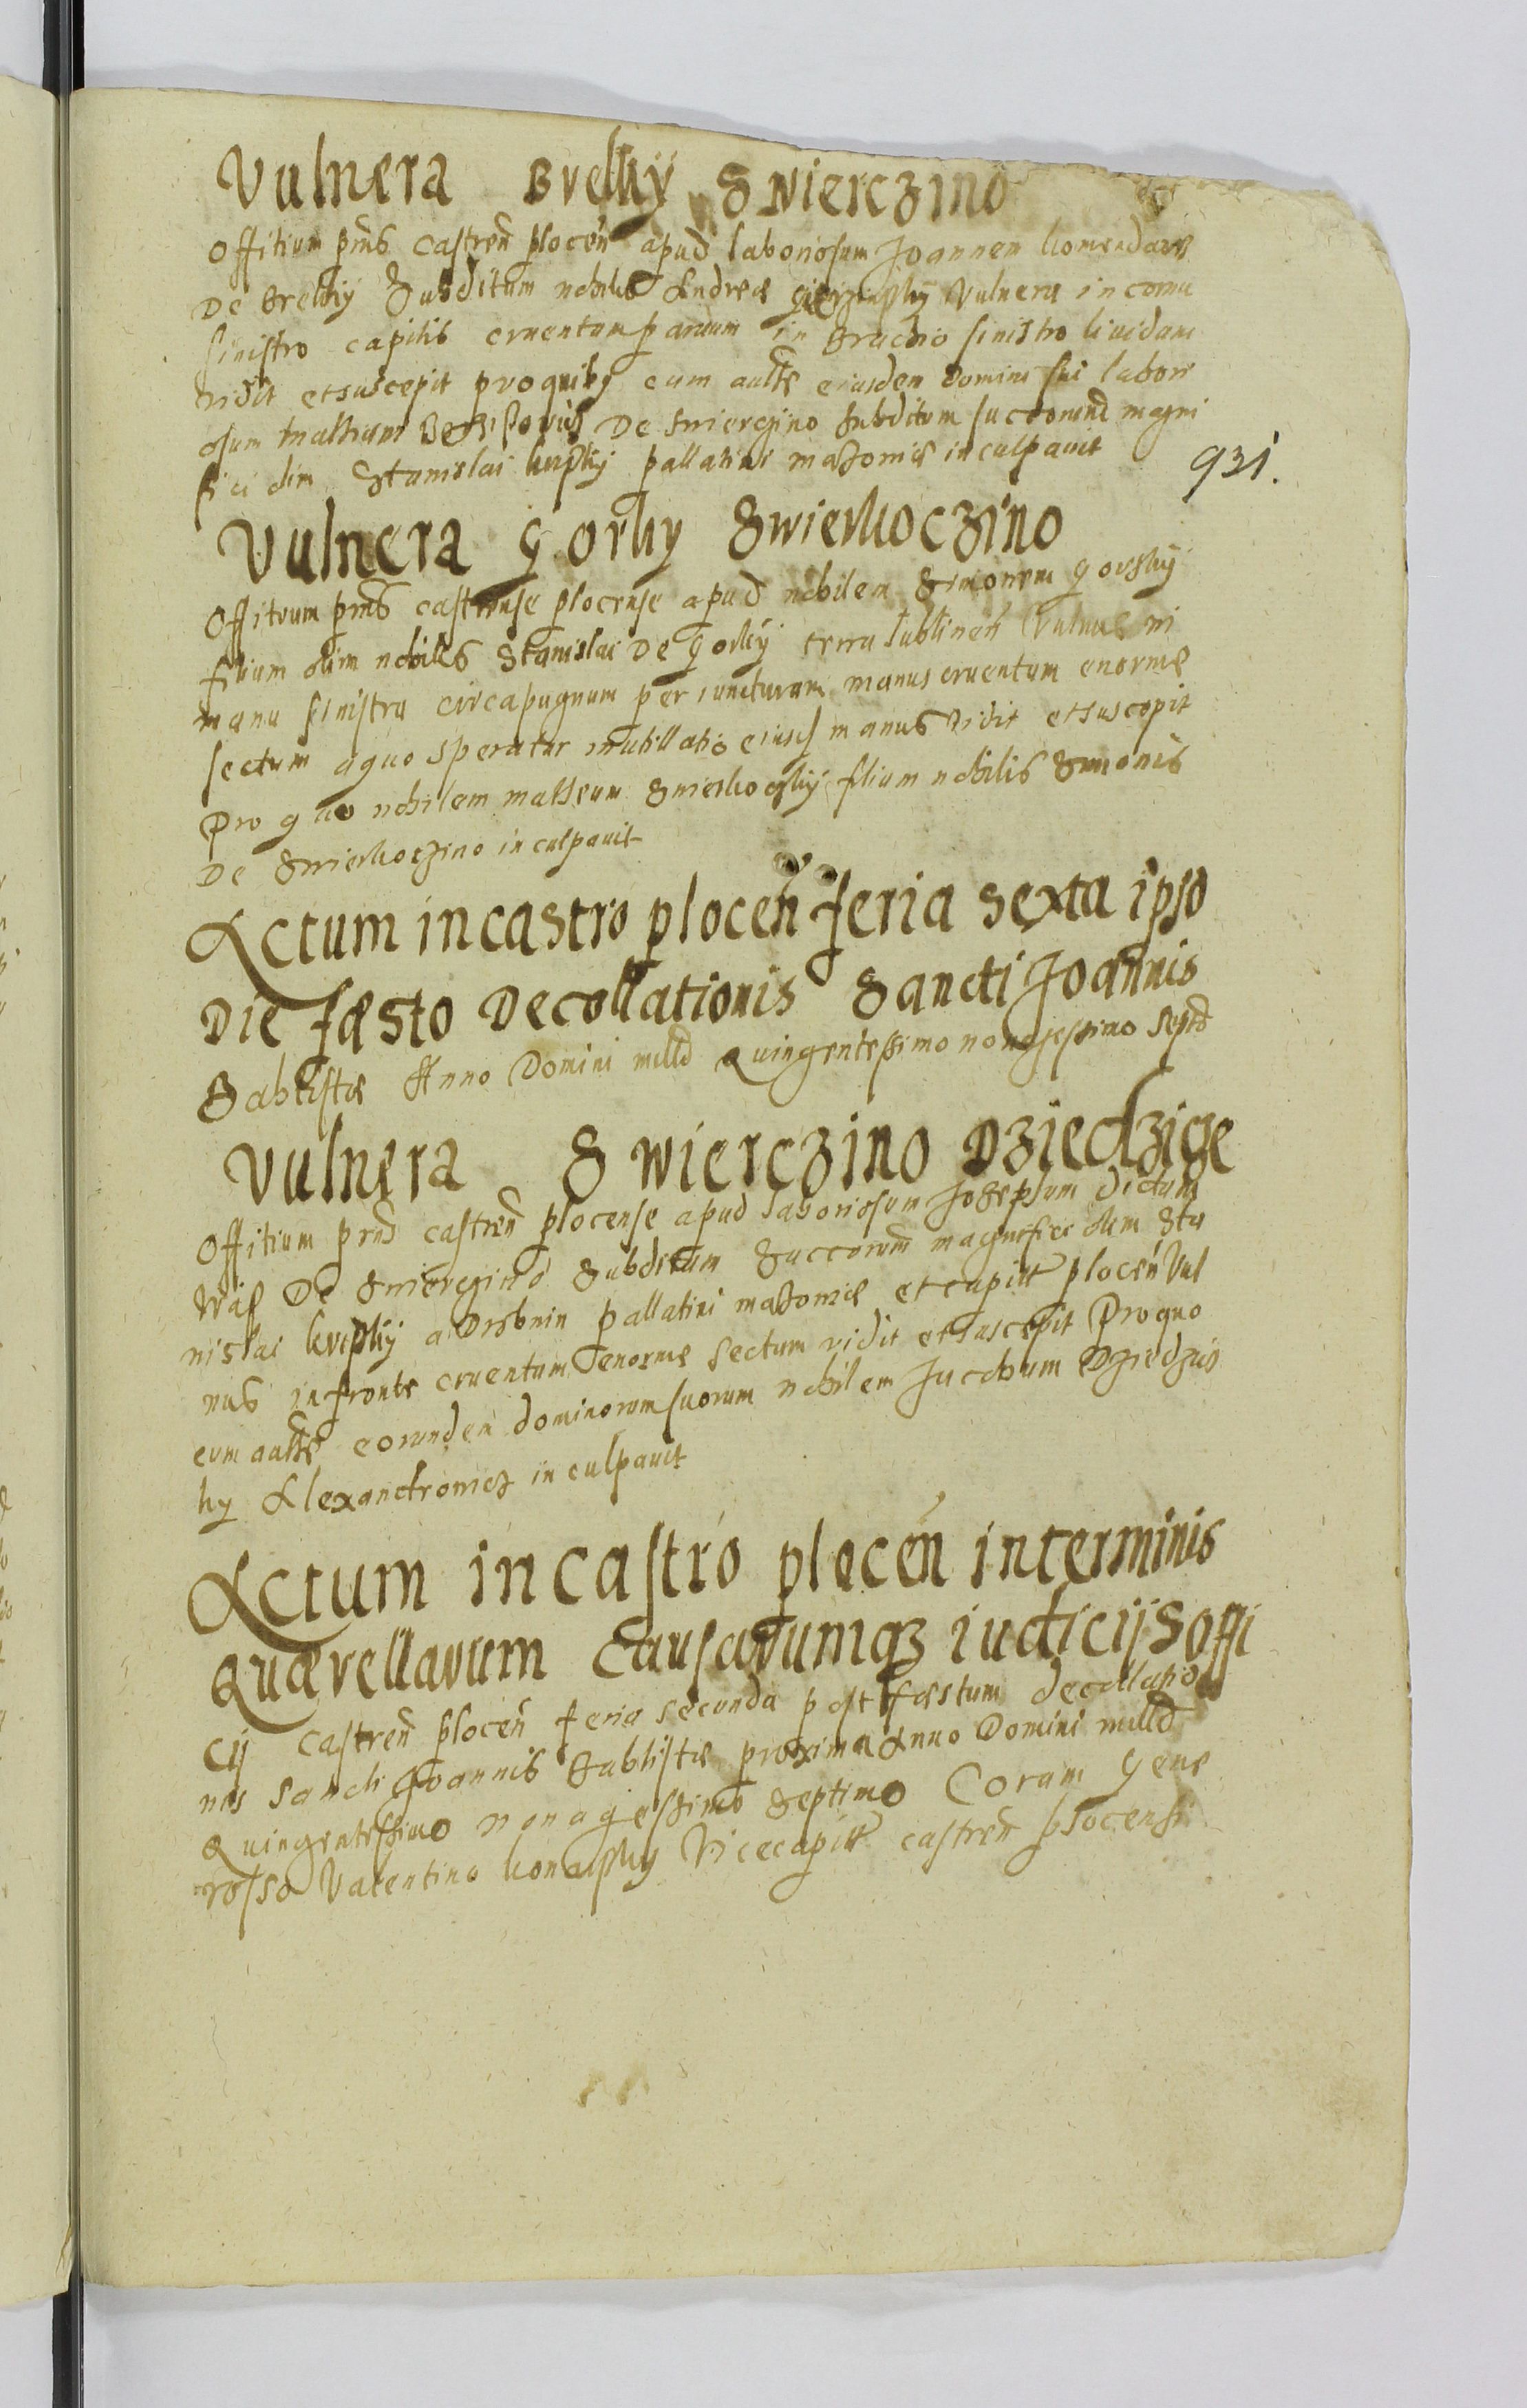 Vulnera Brelky Swierczino
Offitium pns castren plocen apud laboriosum Joannem
De Brelky Subditum nobilis Andreæ Vulnera in cornu
sinistro capitis cruentum paruum in Brachio sinistro liuidum
vidit et suscepit pro quiby cum autte eiusdem Domini sui labori
osum De Swierczino Subditum succorum magni
fici olim Stanislai krysky pallatini mazoniæ inculpauit
931.
Vulnera Gorky Swierkoczino
Offitium pns castrense plocense apud nobilem Simonem Gorsky
filium olim nobilis Stanislai De Gorky terra lublinen Vulnus in
manu sinistra circa pugnum per iuncturam manus cruentum enorme
sectum a quo speratur mutillatio eiusd manus vidit et suscepit
Pro quo nobilem mattheum Swierkocsky filium nobilis Simonis
De Swierkoczino inculpauit
Actum in castro plocen feria sexta ipso
Die fæsto Decollationis Sancti Joannis
Babtistæ Anno Domini milld Quingentessimo nonagessimo septo
Vulnera Swierczino Dziedzice
Offitium prnd castren plocense apud laboriosum Josephum dictum
De Swierczino Subditum Succorum magnifici olim Sta
nislai krysky a Drobnin pallatini mazoniæ et capitt plocen Vul
nus in fronte cruentum enorme sectum vidit et suscepit Pro quo
cum autte eorunden dominorum suorum nobilem Jacobum Dziedzic
ky Alexandrowicz inculpauit
Actum in castro plocen in terminis
Quærellarum Causarumqz iudicij Soffi
cij Castren plocen feria secunda post fæstum decollatio
nis Sancti Joannis Babtistæ proxima Anno Domini milld
Quingentessimo nonagessimo Septimo Coram Gene
rosso Valentino Vicecapitt castren plocensi